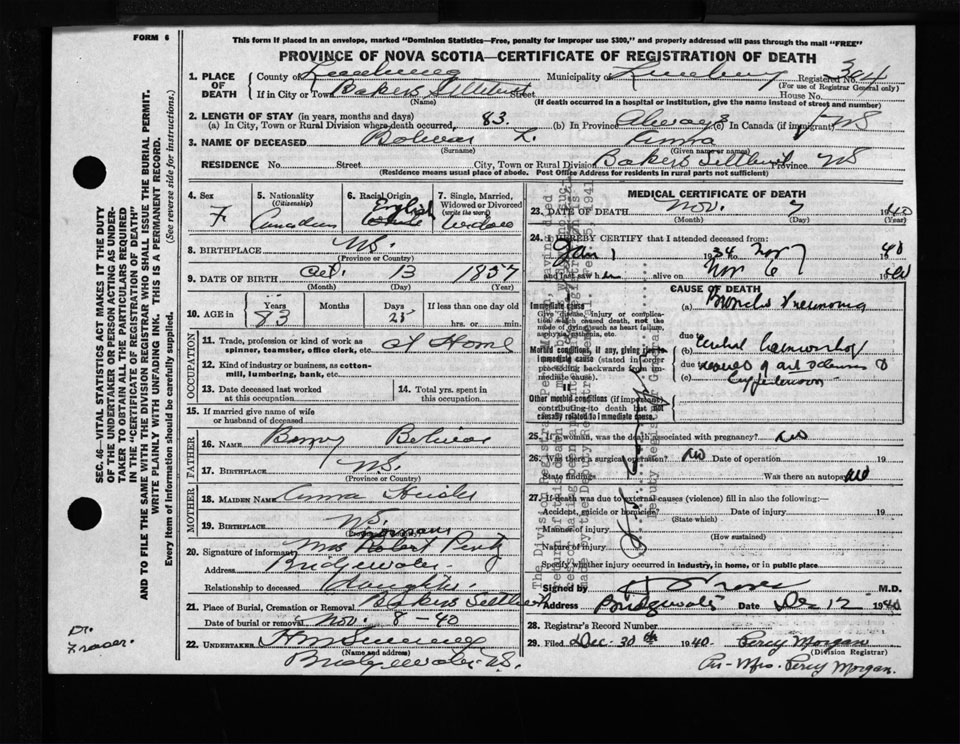 FORM 6
This form if placed in an envelope, marked "Dominion Statistics—Free, penalty for improper use $300," and properly addressed will pass through the mail "FREE"
PROVINCE OF NOVA SCOTIA—CERTIFICATE OF REGISTRATION OF DEATH
1. PLACE OF DEATH
County of Lunenburg Municipality of Lunenburg Registered No. 384
(For use of Registrar General only)
If in City or Town Bakers Settlement Street House No.
(Name) (If death occurred in a hospital or institution, give the name instead of street and number)
2. LENGTH OF STAY (in years, months and days)
(a) In City, Town or Rural Division where death occurred, 83. (b) In Province Always (c) In Canada (if immigrant) NS
3. NAME OF DECEASED Bolivar L.
(Surname) (Given name or names)
RESIDENCE No. Street. City, Town or Rural Division Bakers Settlement Province NS
(Residence means usual place of abode. Post Office Address for residents in rural parts not sufficient)
4. Sex F
5. Nationality (Citizenship) Canadian
6. Racial Origin English
7. Single, Married, Widowed or Divorced (write the word) Widow
8. BIRTHPLACE NS.
(Province or Country)
9. DATE OF BIRTH Oct. 13 1857
(Month) (Day) (Year)
10. AGE in Years 83 Months Days 25 If less than one day old
hrs. or min.
OCCUPATION
11. Trade, profession or kind of work as spinner, teamster, office clerk, etc. At Home
12. Kind of industry or business, as cotton-mill, lumbering, bank, etc.
13. Date deceased last worked at this occupation
14. Total yrs. spent in this occupation
15. If married give name of wife or husband of deceased
FATHER
16. NAME Bolivar
17. BIRTHPLACE N.S.
(Province or Country)
MOTHER
18. MAIDEN NAME Anna Heisler
19. BIRTHPLACE NS.
20. Signature of informant Mrs Robert Pentz
Address Bridgewater
Relationship to deceased daughter
21. Place of Burial, Cremation or Removal Bakers Settlement
Date of burial or removal Nov. 8 - 40
22. UNDERTAKER
(Name and address)
Bridgewater N.S.
MEDICAL CERTIFICATE OF DEATH
23. DATE OF DEATH Nov. 7 1940
(Month) (Day) (Year)
24. I HEREBY CERTIFY that I attended deceased from:
Jan 1 1934 to Nov 7 1940
and last saw her alive on Nov 6 1940
CAUSE OF DEATH
Immediate cause
Give disease, injury or complication which caused death, not the mode of dying such as heart failure, asphyxia, asthenia, etc.
(a) Broncho Pneumonia
due
Morbid conditions, if any, giving rise to immediate cause (stated in order proceeding backwards from immediate cause).
(b) Cerebral haemorrhage
due
(c)
Other morbid conditions (if important) contributing to death but not causally related to immediate cause.
25. If a woman, was the death associated with pregnancy? No
26. Was there a surgical operation? No Date of operation 19
State findings Was there an autopsy? No
27. If death was due to external causes (violence) fill in also the following:
Accident, suicide or homicide? Date of injury 19
(State which)
Manner of injury
(How sustained)
Nature of injury
Specify whether injury occurred in industry, in home, or in public place
Signed by M.D.
Address Bridgewater Date Dec 12 1940
28. Registrar's Record Number
29. Filed Dec - 30th 1940. Percy Morgan
(Division Registrar)
Per - Mrs. Percy Morgan.
SEC. 46—VITAL STATISTICS ACT MAKES IT THE DUTY
OF THE UNDERTAKER OR PERSON ACTING AS UNDER-
TAKER TO OBTAIN ALL THE PARTICULARS REQUIRED
IN THE "CERTIFICATE OF REGISTRATION OF DEATH"
AND TO FILE THE SAME WITH THE DIVISION REGISTRAR WHO SHALL ISSUE THE BURIAL PERMIT.
WRITE PLAINLY WITH UNFADING INK. THIS IS A PERMANENT RECORD.
Every item of Information should be carefully supplied. (See reverse side for instructions.)
Dr.
Fraser
Deputy Registrar General